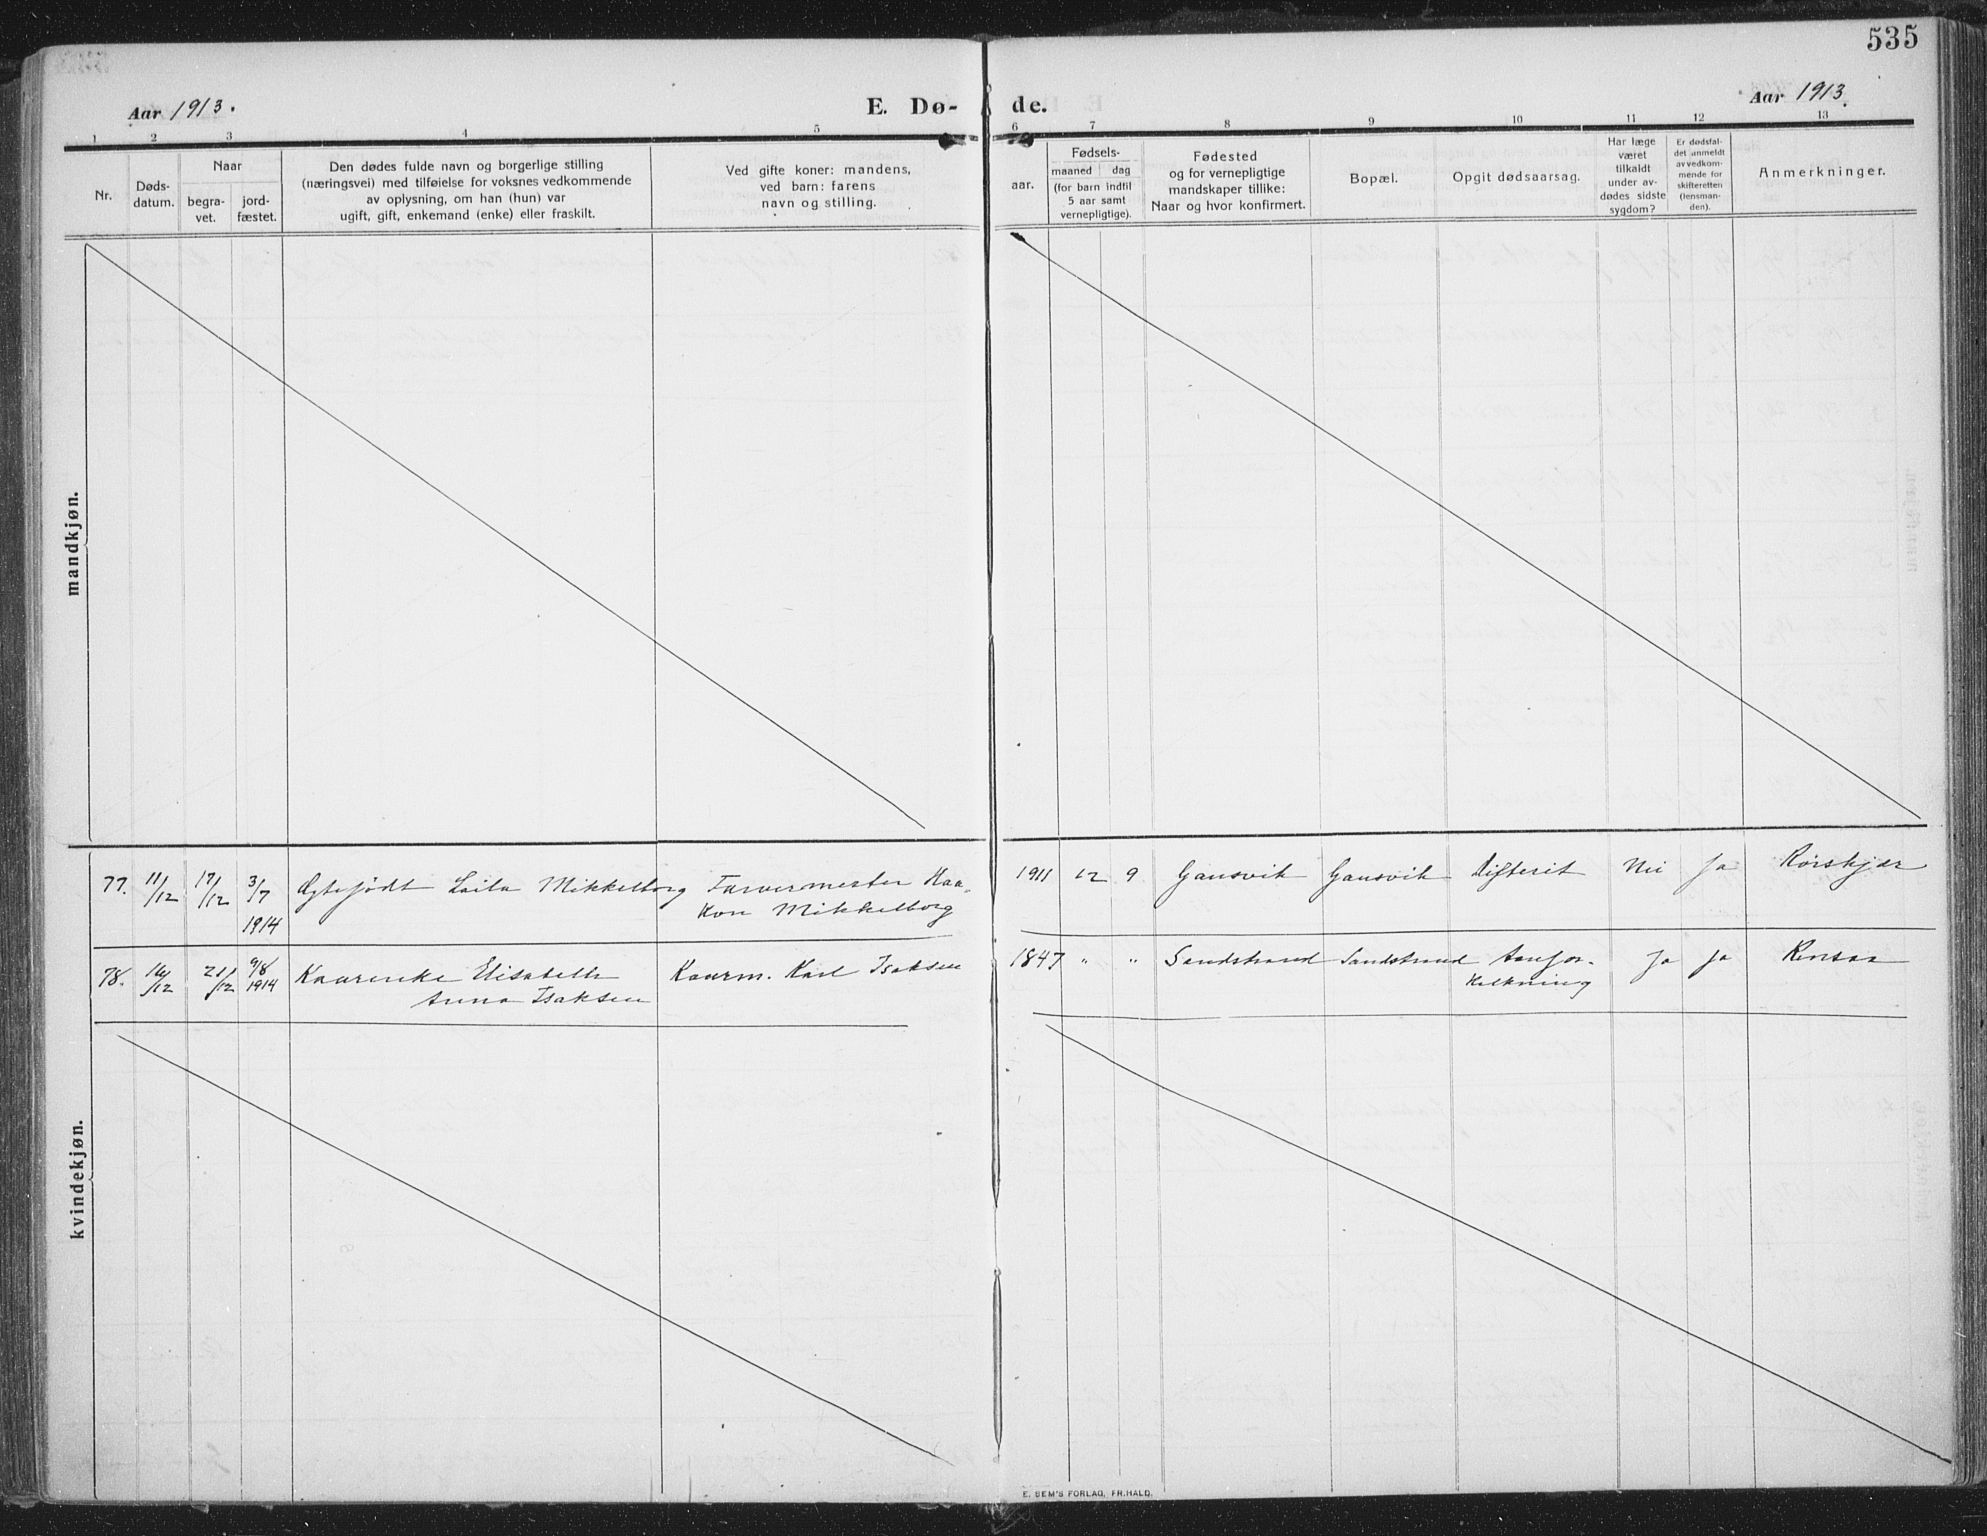 535
Aar 1913.
E. Dø-
de.
Aar 1913.
1 2 3 4 5 6 7 8 9 10 11 12 13
Nr.
Døds-
datum.
Naar
begra-
vet.
jord-
fæstet.
Den dødes fulde navn og borgerlige stilling
(næringsvei) med tilføielse for voksnes vedkommende
av oplysning, om han (hun) var
ugift, gift, enkemand (enke) eller fraskilt.
Ved gifte koner: mandens,
ved barn: farens
navn og stilling.
aar.
Fødsels-
maaned dag
(for barn indtil
5 aar samt
vernepligtige).
Fødested
og for vernepligtige
mandskaper tillike:
Naar og hvor konfirmert.
Bopæl.
Opgit dødsaarsag.
Har læge
været
tilkaldt
under av-
dødes sidste
sygdom?
Er dødsfal-
det anmeldt
av vedkom-
mende for
skifteretten
(lensman-
den).
Anmerkninger.
mandkjøn.
77. 11/12 17/12 3/7 Ogtefødt Laila Mikkelborg Farvermester Haa- 1911 12 9 Gansvik Gansvik Difterit Nei Ja Rørskjær
1914 kon Mikkelborg
78. 16/12 21/12 9/8 Kaarenke Elisabeth Kaarm. Karl Isaksen 1847 " " Sandstrand Sandstrand Aarefor- Ja Ja
1914 Anna Isaksen kalkning
kvindekjøn.
E. SEM'S FORLAG, FR.HALD.